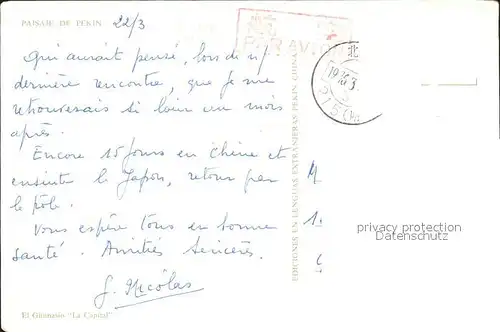 PAISAJE DE PEKIN
22/3
PAR AVION
北
Qui aurait pensé, lors de n/
dernière rencontre, que je me
retrouverais si loin un mois
après.
Encore 15 jours en Chine et
ensuite le Japon, retour par
le pôle.
Vous espère tous en bonne
santé. Amitiés sincères.
G. Nicólas
El Gimnasio "La Capital"
EDICIONES EN LENGUAS EXTRANJERAS PEKIN CHINA
M
1
privacy protection
Datenschutz